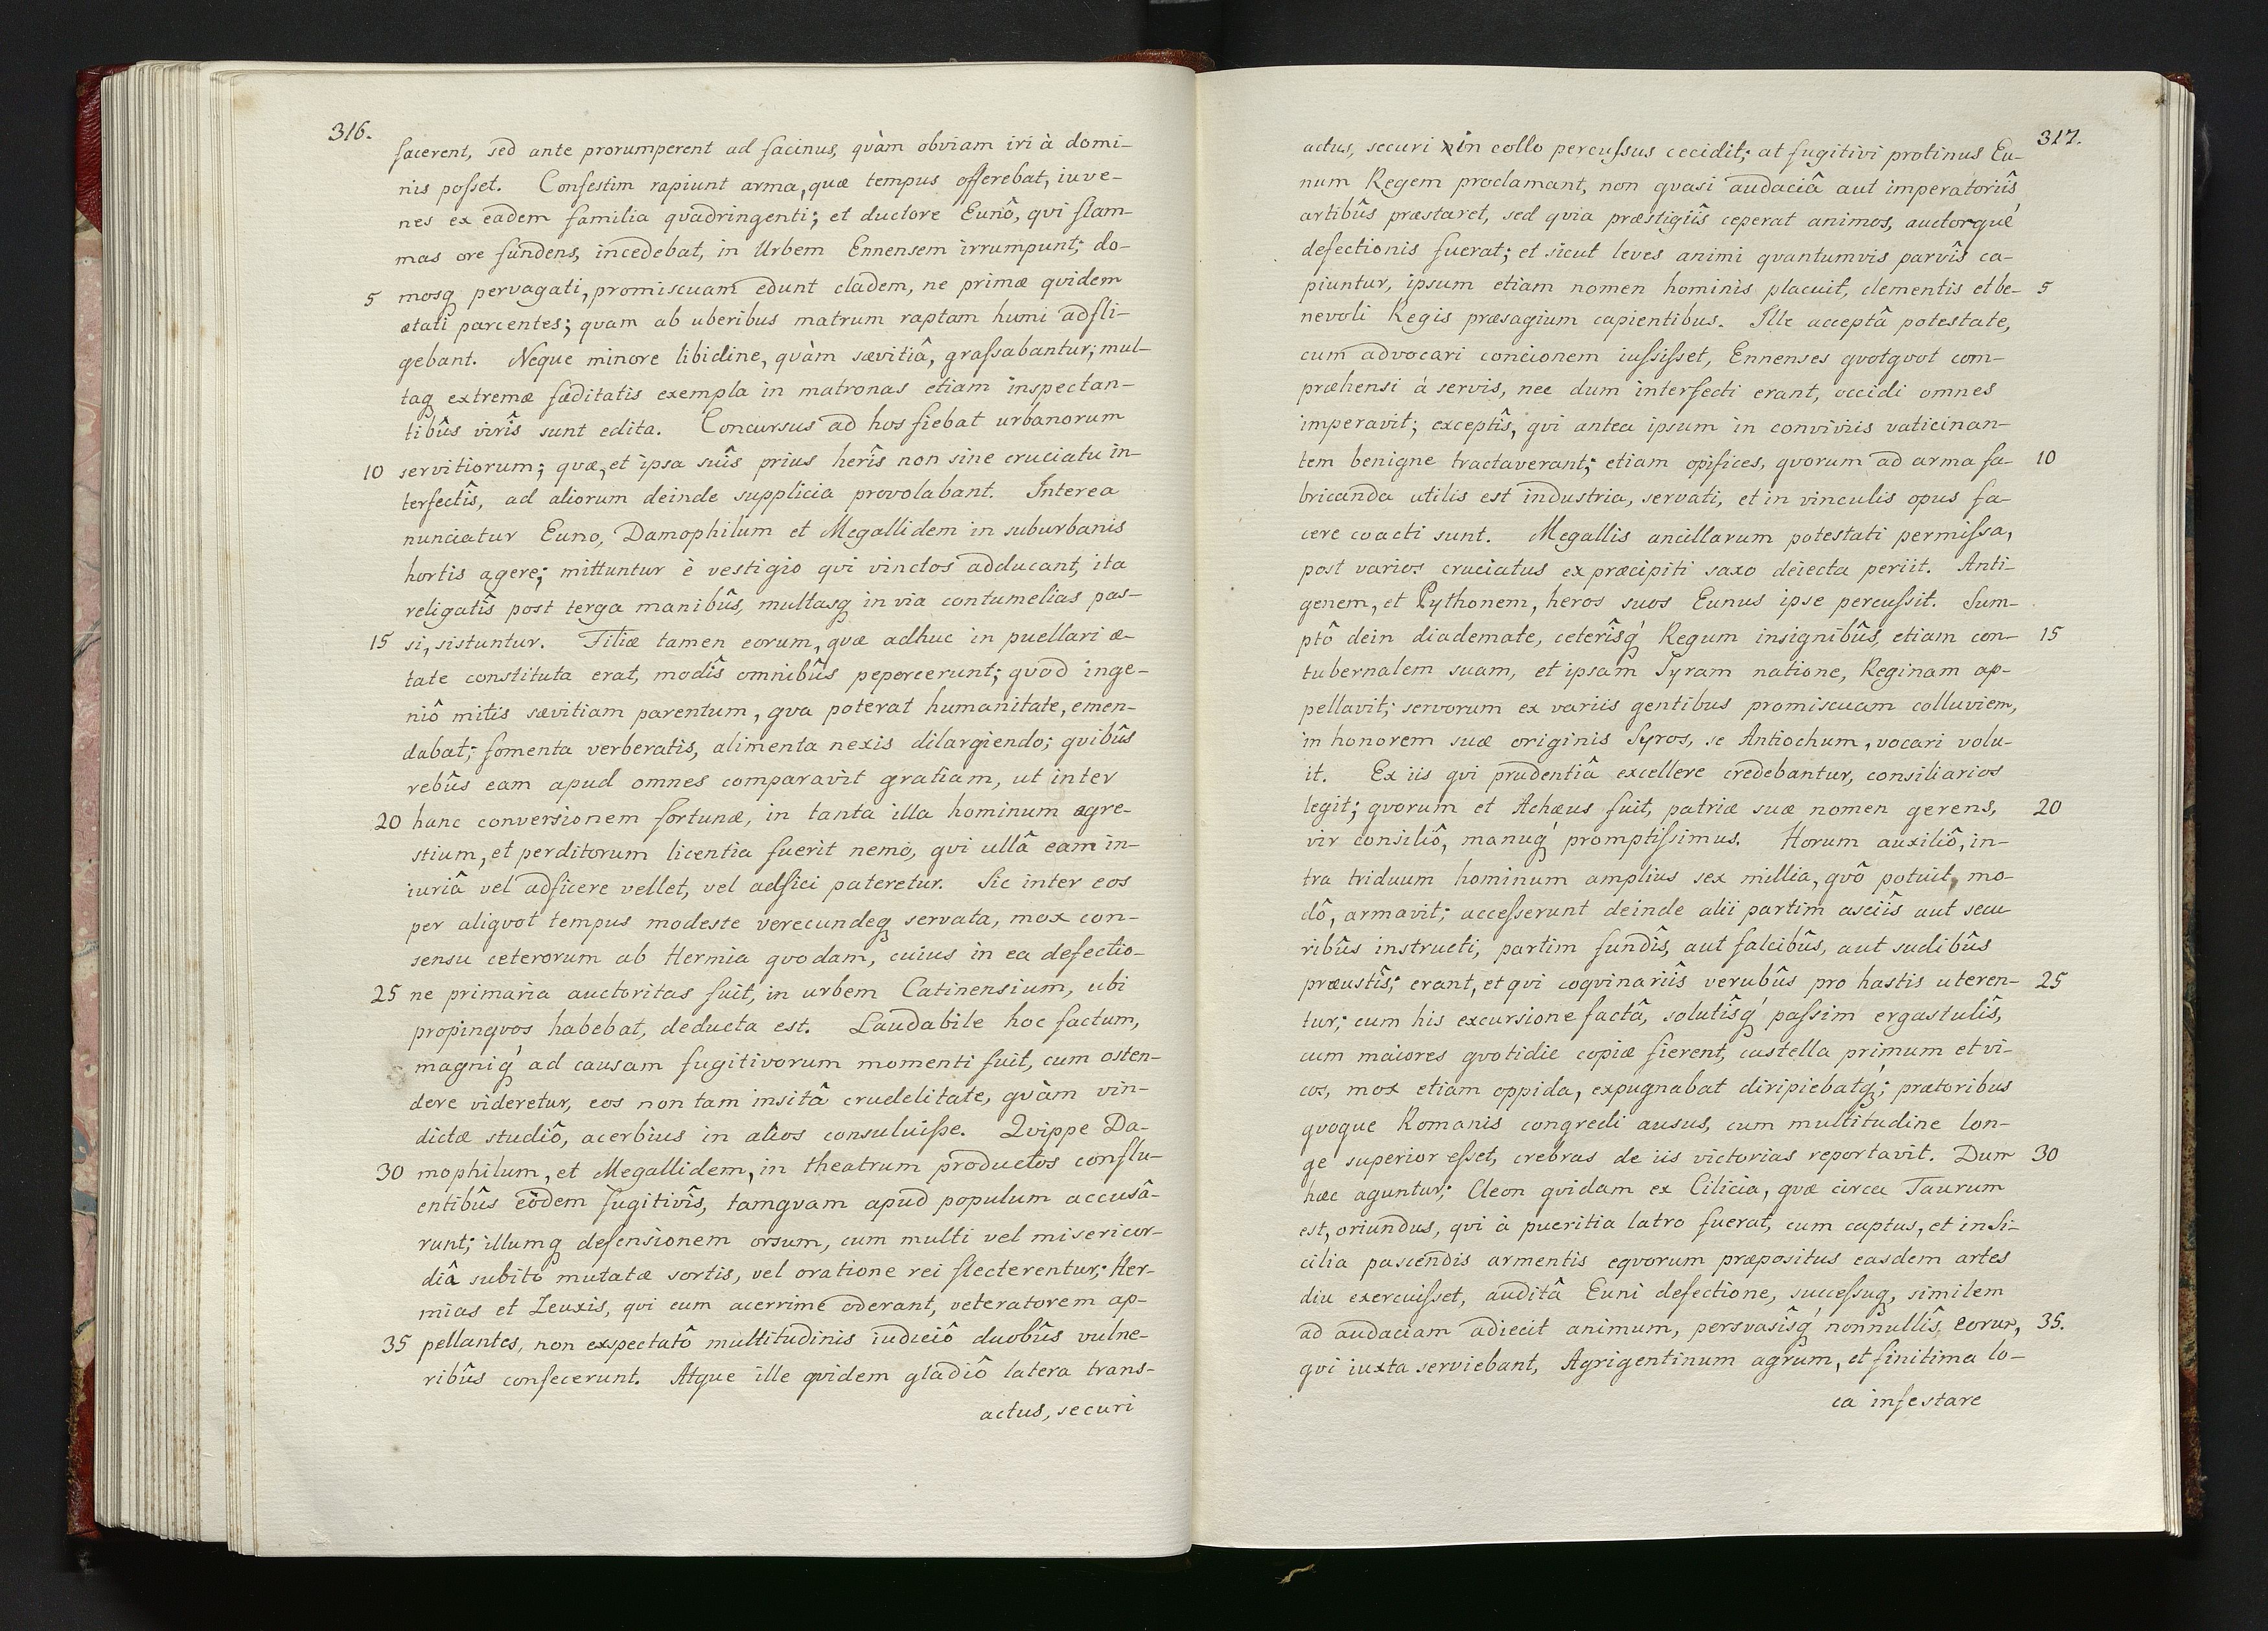 316.
facerent, sed ante prorumperent ad facinus, quàm obviam iri à domi-
nis posset. Confestim rapiunt arma, quæ tempus offerebat, iuve-
nes ex eadem familia quadringenti; et ductore Eunô, qui flam-
mas ore fundens, incedebat, in Urbem Ennensem irrumpunt; do-
5 mosq pervagati, promiscuam edunt cladem, ne primæ quidem
ætati parcentes; quam ab uberibus matrum raptam humi adfli-
gebant. Neque minore libidine, quàm sævitiâ, grassabantur; mul-
taq extremæ fæditatis exempla in matronas etiam inspectan-
tibûs virîs sunt edita. Concursus ad hos fiebat urbanorum
10 servitiorum; quæ, et ipsa suîs prius herîs non sine cruciatu in-
terfectîs, ad aliorum deinde supplicia provolabant. Interea
nunciatur Euno, Damophilum et Megallidem in suburbanis
hortis agere; mittuntur è vestigio qui vinctos adducant, ita
religatîs post terga manibûs, multasq in via contumelias pas-
15 si, sistuntur. Filiæ tamen eorum, quæ adhuc in puellari æ-
tate constituta erat, modîs omnibûs pepercerunt; quod inge-
niô mitis sævitiam parentum, qva poterat humanitate, emen-
dabat; fomenta verberatis, alimenta nexis dilargiendo; qvibûs
rebûs eam apud omnes comparavit gratiam, ut inter
20 hanc conversionem fortunæ, in tanta illa hominum agre-
stium, et perditorum licentia fuerit nemo, qvi ullâ eam in-
iuriâ vel adficere vellet, vel adfici pateretur. Sic inter eos
per aliqvot tempus modeste verecundeq servata, mox con-
sensu ceterorum ab Hermia qvodam, cuius in ea defectio-
25 ne primaria auctoritas fuit, in urbem Catinensium, ubi
propinqvos habebat, deducta est. Laudabile hoc factum,
magniq́ ad causam fugitivorum momenti fuit, cum osten-
dere videretur, eos non tam insitâ crudelitate, qvàm vin-
dictæ studiô, acerbius in alios consuluisse. Qvippe Da-
30 mophilum, et Megallidem, in theatrum productos conflu-
entibûs eôdem fugitivîs, tamqvam apud populum accusâ-
runt; illumq defensionem orsum, cum multi vel misericor-
diâ subito mutatæ sortis, vel oratione rei flecterentur; Her-
mias et Zeuxis, qvi eum acerrime oderant, veteratorem ap-
35 pellantes, non expectatô multitudinis iudiciô duobûs vulne-
ribûs confecerunt. Atque ille qvidem gladiô latera trans-
actus, securi
317.
actus, securi in collo percussus cecidit; at fugitivi protinus Eu-
num Regem proclamant, non qvasi audaciâ aut imperatoriîs
artibûs præstaret, sed qvia præstigiîs ceperat animos, auctorqué
defectionis fuerat; et sicut leves animi qvantumvis parvîs ca-
piuntur, ipsum etiam nomen hominis placuit, clementis et be- 5
nevoli Regis præsagium capientibus. Ille acceptâ potestate,
cum advocari concionem iussisset, Ennenses qvotqvot com-
præhensi à servis, nec dum interfecti erant, occidi omnes
imperavit; exceptîs, qvi antea ipsum in conviviis vaticinan-
tem benigne tractaverant; etiam opifices, qvorum ad arma fa- 10
bricanda utilis est industria, servati, et in vinculis opus fa-
cere coacti sunt. Megallis ancillarum potestati permissa,
post varios cruciatus ex præcipiti saxo deiecta periit. Anti-
genem, et Pythonem, heros suos Eunus ipse percussit. Sum-
ptô dein diademate, ceterîsq́ Regum insignibûs, etiam con- 15
tubernalem suam, et ipsam Syram natione, Reginam ap-
pellavit; servorum ex variis gentibus promiscuam colluviem,
in honorem suæ originis Syros, se Antiochum, vocari volu-
it. Ex iis qvi prudentiâ excellere credebantur, consiliarios
legit; qvorum et Achæus fuit, patriæ suæ nomen gerens, 20
vir consiliô, manuq́ promptissimus. Horum auxiliô, in-
tra triduum hominum amplius sex millia, qvô potuit, mo-
dô, armavit; accesserunt deinde alii partim asciîs aut secu
ribûs instructi, partim fundîs, aut falcibûs, aut sudibûs
præustîs; erant, et qvi coqvinariîs verubûs pro hastis uteren- 25
tur; cum his excursione factâ, solutîsq́ passim ergastulîs,
cum maiores qvotidie copiæ fierent, castella primum et vi-
cos, mox etiam oppida, expugnabat diripiebatq́; prætoribus
qvoque Romanis congredi ausus, cum multitudine lon-
ge superior esset, crebras de iis victorias reportavit. Dum 30
hæc aguntur; Cleon qvidam ex Cilicia, qvæ circa Taurum
est, oriundus, qvi à pueritia latro fuerat, cum captus, et in Si-
cilia pascendis armentis eqvorum præpositus easdem artes
diu exercuisset, auditâ Euni defectione, successuq, similem
ad audaciam adiecit animum, persvasîsq́ nonnullîs eorum, 35.
qvi iuxta serviebant, Agrigentinum agrum, et finitima lo-
ca infestare